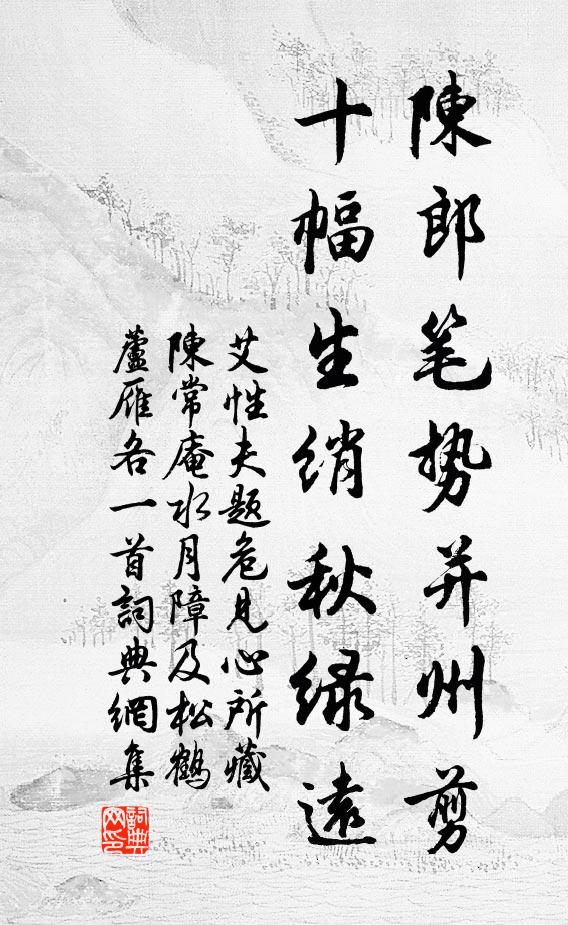 陳郎笔势并州剪
十幅生绡秋绿遠
艾性夫题危見心所藏
陳常庵水月障及松鶴
蘆雁各一首詞典網集
詞典
网印